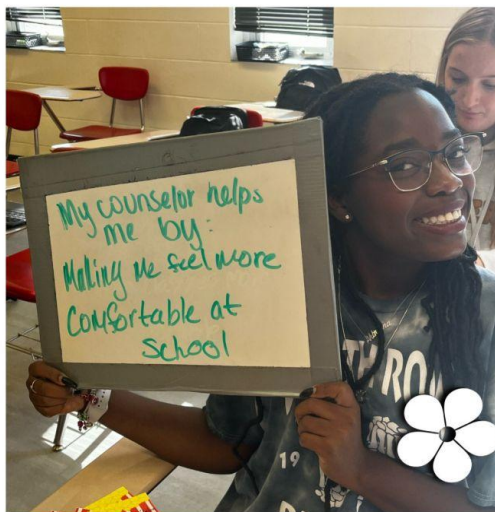 My counselor helps
me by:
Making me feel more
Comfortable at
School
TH RO
19